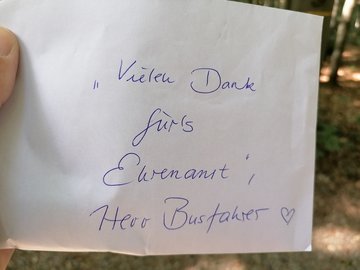 „Vielen Dank
für's
Ehrenamt",
Herr Busfahrer ♡